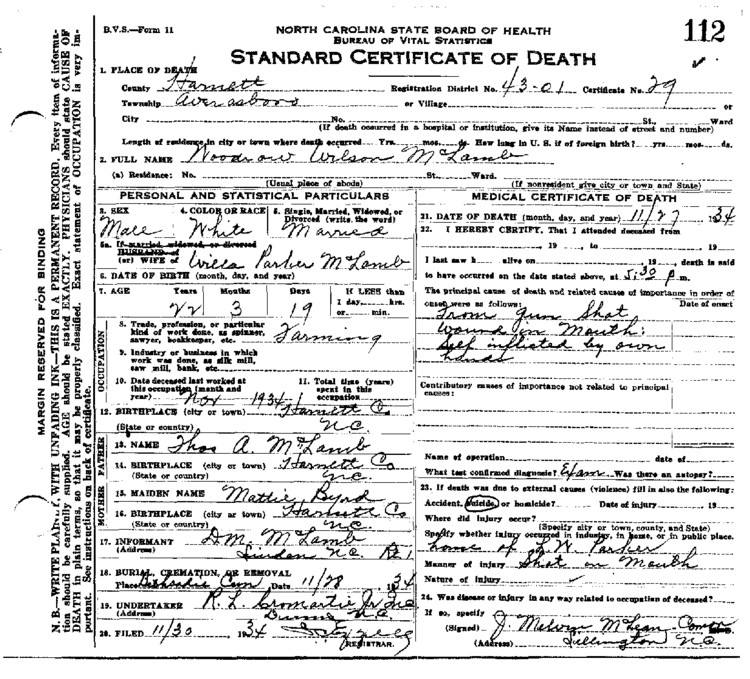 B.V.S.—Form 11
NORTH CAROLINA STATE BOARD OF HEALTH
BUREAU OF VITAL STATISTICS
112
STANDARD CERTIFICATE OF DEATH
MARGIN RESERVED FOR BINDING
N.B.—WRITE PLAINLY, WITH UNFADING INK—THIS IS A PERMANENT RECORD. Every item of information should be carefully supplied. AGE should be stated EXACTLY. PHYSICIANS should state CAUSE OF DEATH in plain terms, so that it may be properly classified. Exact statement of OCCUPATION is very important. See instructions on back of certificate.
1. PLACE OF DEATH
County Harnett Registration District No. 43-01 Certificate No. 29
Township Averasboro or Village or
City No. St., Ward
(If death occurred in a hospital or institution, give its Name instead of street and number)
Length of residence in city or town where death occurred Yrs. mos. ds. How long in U. S. if of foreign birth? yrs. mos. ds.
2. FULL NAME Woodrow Wilson McLamb
(a) Residence: No. St. Ward.
(Usual place of abode) (If nonresident give city or town and State)
PERSONAL AND STATISTICAL PARTICULARS
3. SEX 4. COLOR OR RACE 5. Single, Married, Widowed, or Divorced (write the word)
Male White Married
5a. If married, widowed, or divorced
HUSBAND of
(or) WIFE of Willa Parker McLamb
6. DATE OF BIRTH (month, day, and year)
7. AGE Years Months Days If LESS than
22 3 19 1 day, hrs.
or min.
OCCUPATION
8. Trade, profession, or particular
kind of work done, as spinner,
sawyer, bookkeeper, etc. Farming
9. Industry or business in which
work was done, as silk mill,
saw mill, bank, etc.
10. Date deceased last worked at
this occupation (month and
year) Nov 1934
11. Total time (years)
spent in this
occupation
12. BIRTHPLACE (city or town) Harnett Co
(State or country) N.C.
FATHER
13. NAME Thos A. McLamb
14. BIRTHPLACE (city or town) Harnett Co
(State or country) N.C.
MOTHER
15. MAIDEN NAME Mattie Byrd
16. BIRTHPLACE (city or town) Harnett Co
(State or country) N.C.
17. INFORMANT D.M. McLamb
(Address) Linden N.C. Rt 1
18. BURIAL, CREMATION, OR REMOVAL
Place Cem Date 11/28 1934
19. UNDERTAKER R. L. Cromartie Jr Inc
(Address) Dunn N.C.
20. FILED 11/30 1934
REGISTRAR.
MEDICAL CERTIFICATE OF DEATH
21. DATE OF DEATH (month, day, and year) 11/27 1934
22. I HEREBY CERTIFY, That I attended deceased from
, 19 , to , 19
I last saw h alive on , 19 , death is said
to have occurred on the date stated above, at 5:30 p.m.
The principal cause of death and related causes of importance in order of
onset were as follows: Date of onset
From gun shot
wound in mouth:
self inflicted by own
hands
Contributory causes of importance not related to principal
causes:
Name of operation date of
What test confirmed diagnosis? Exam Was there an autopsy?
23. If death was due to external causes (violence) fill in also the following:
Accident, suicide, or homicide? Date of injury 19
Where did injury occur?
(Specify city or town, county, and State)
Specify whether injury occurred in industry, in home, or in public place.
home of W. Parker
Manner of injury Shot in Mouth
Nature of injury
24. Was disease or injury in any way related to occupation of deceased?
If so, specify
(Signed) J. Melvin McLean
(Address) Lillington N.C.